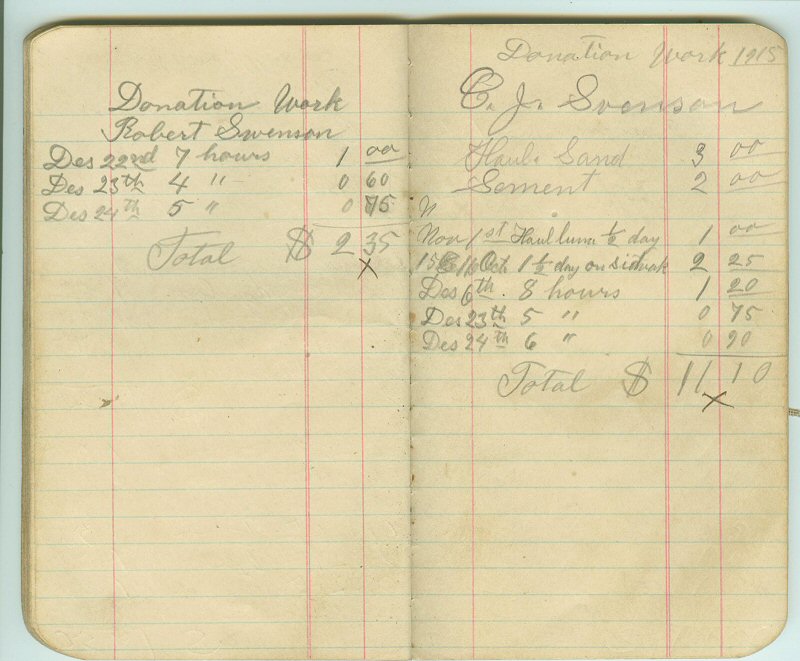 Donation Work
Robert Swenson
Des 22nd 7 hours 1 00
Des 23th 4 " 0 60
Des 24th 5 " 0 75
Total $ 2 35
x
Donation Work 1915
C. J. Svenson
Haul. Sand 3 00
Sement 2 00
N
Nov 1st Haul lum. ½ day 1 00
15 & 16 Oct 1½ day on sidvak 2 25
Des 6th. 8 hours 1 20
Des 23th 5 " 0 75
Des 24th 6 " 0 90
Total $ 11 10
x